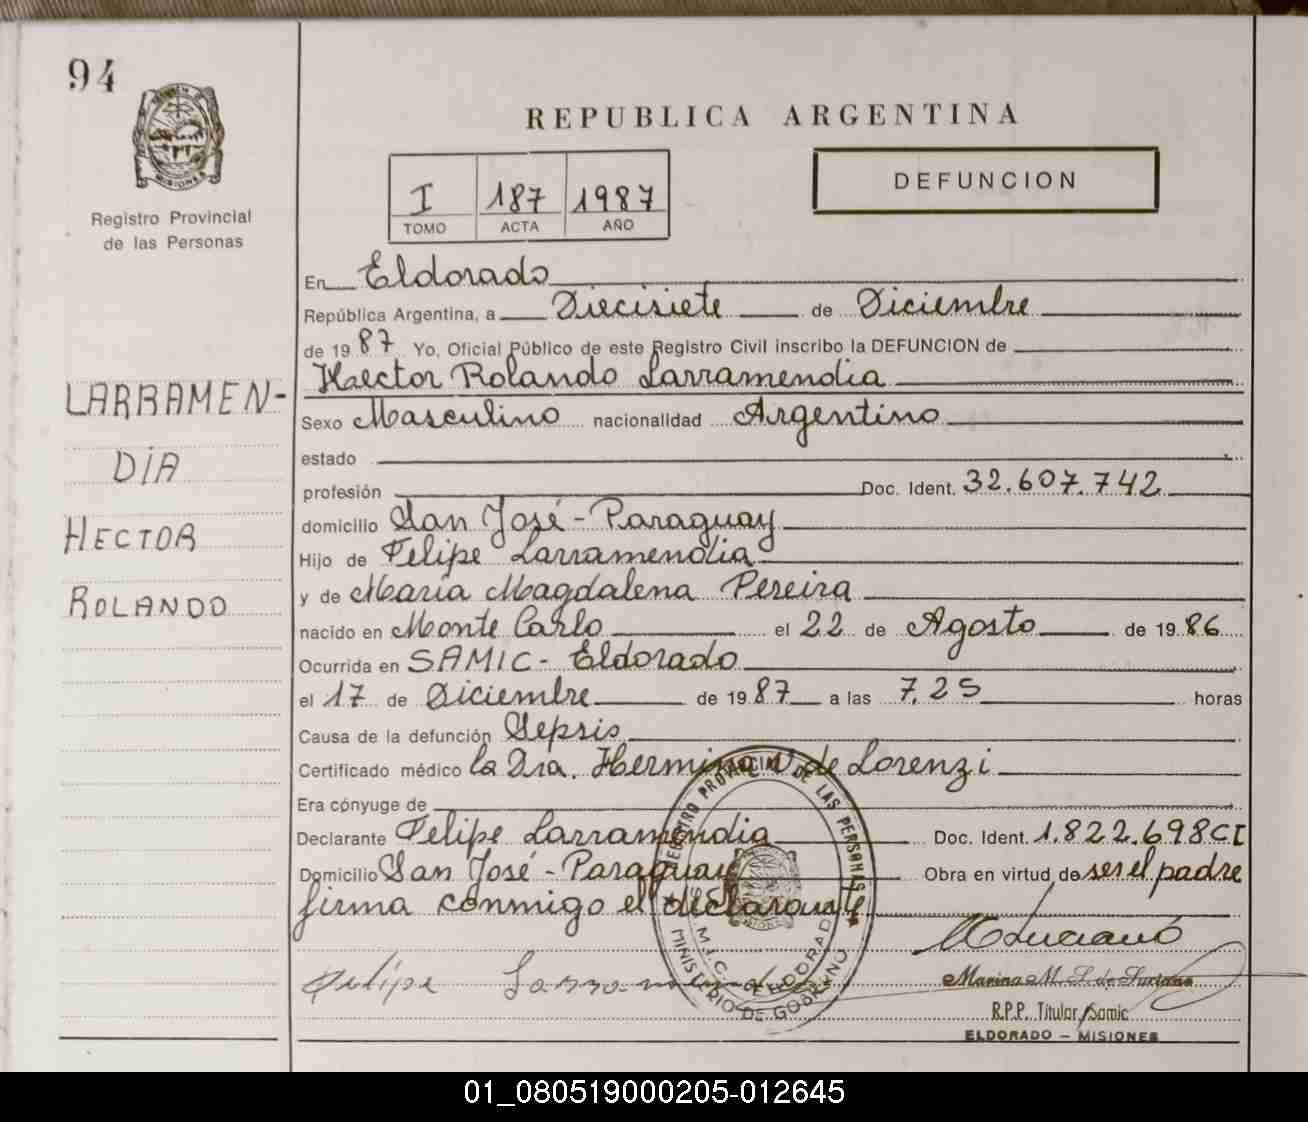 94
REPUBLICA ARGENTINA
MISIONES
Registro Provincial
de las Personas
I 187 1987
TOMO ACTA AÑO
DEFUNCION
En Eldorado
República Argentina, a Diecisiete de Diciembre
de 1987 Yo, Oficial Público de este Registro Civil inscribo la DEFUNCION de
Haector Rolando Larramendia
LARRAMEN-
DIA
HECTOR
ROLANDO
Sexo Masculino nacionalidad Argentino
estado
profesión Doc. Ident. 32.607.742
domicilio San José - Paraguay
Hijo de Felipe Larramendia
y de Maria Magdalena Pereira
nacido en Monte Carlo el 22 de Agosto de 1986
Ocurrida en SAMIC - Eldorado
el 17 de Diciembre de 1987 a las 7,25 horas
Causa de la defunción Sepsis
Certificado médico la Dra. Hermina V de Lorenzi
Era cónyuge de
Declarante Felipe Larramendia Doc. Ident. 1.822.698 CI
Domicilio San José - Paraguay Obra en virtud de ser el padre
firma conmigo el declarante
REGISTRO PROVINCIAL DE LAS PERSONAS
M.J.C. - ELDORADO
MINISTERIO DE GOBIERNO
Felipe Larramendia
Marina M. S. de
R.P.P. Titular Samic
ELDORADO - MISIONES
01_080519000205-012645